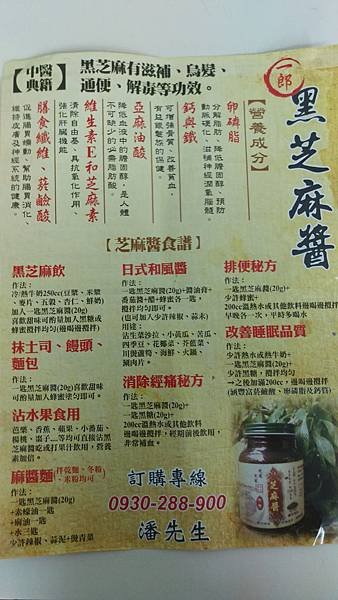 中醫典籍
黑芝麻有滋補、烏髮、
通便、解毒等功效。
一郎
黑芝麻醬
【營養成分】
卵磷脂
分解脂肪、降低膽固醇、預防
動脈硬化、滋補神經潤氣腦髓。
鈣與鐵
可增強骨質、改善貧血，
有益銀髮族的保健。
亞麻油酸
降低血液中的膽固醇，是人體
不可缺少的必需脂肪酸。
維生素E和芝麻素
清除自由基、具抗氧化作用、
強化肝臟機能。
膳食纖維、菸鹼酸
促進腸胃蠕動、幫助腸胃消化，
維持皮膚及神經系統的健康。
【芝麻醬食譜】
黑芝麻飲
作法：
冷/熱牛奶250cc(豆漿、米漿
、麥片、五穀、杏仁、鮮奶)
加入一匙黑芝麻醬(20g)
喜飲甜味可酌量加入黑糖或
蜂蜜攪拌均勻(邊喝邊攪拌)
抹土司、饅頭、
麵包
作法：
一匙黑芝麻醬(20g)喜飲甜味
可酌量加入蜂蜜塗勻即可。
沾水果食用
芭樂、香蕉、蘋果、小番茄、
楊桃、棗子…等均可直接沾黑
芝麻醬吃或打果汁飲用，營養
素加倍。
麻醬麵(拌乾麵、冬粉、米粉均可)
作法：
一匙黑芝麻醬(20g)
+素蠔油一匙
+麻油一匙
+水三匙
少許辣椒、蒜泥+燙青菜
日式和風醬
一匙黑芝麻醬(20g)+醬油膏+
番茄醬+醋+蜂蜜各一匙，
攪拌均勻即可。
(也可加入少許辣椒、蒜末)
用途：
沾生菜沙拉、小黃瓜、苦瓜、
四季豆、花椰菜、芥藍菜、
川燙蘆筍、海鮮、火鍋、
涮肉片。
消除經痛秘方
作法：
一匙黑芝麻醬(20g)+
一匙黑糖(20g)+
200cc溫熱水或其他飲料
邊喝邊攪拌，經期前後飲用，
非常補血。
排便秘方
作法：
一匙黑芝麻醬(20g)+
少許蜂蜜+
200cc溫熱水或其他飲料邊喝邊攪拌
早晚各一次，平時多喝水
改善睡眠品質
作法：
少許熱水或熱牛奶+
一匙黑芝麻醬(20g)+
少許黑糖，攪拌均勻
→之後加滿200cc，邊喝邊攪拌
(涵豐富菸鹼酸、卵磷脂及鈣質)
訂購專線
0930-288-900
潘先生
芝麻醬